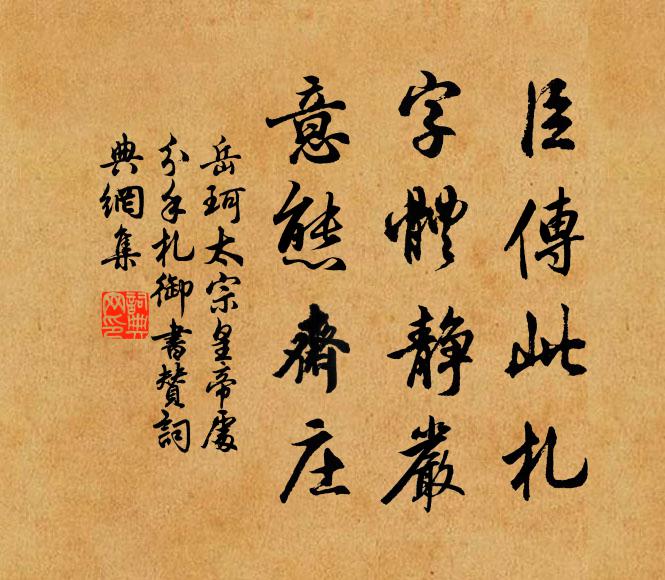 臣傳此札
字體靜嚴
意態齋庄
岳珂太宗皇帝處
分手札御書贊詞
典網集
詞典
网印